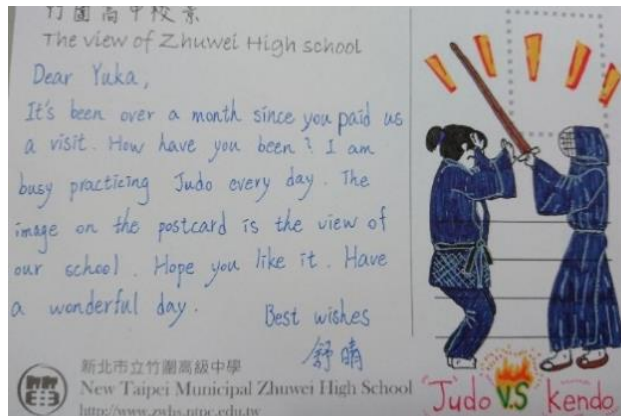 竹圍高中校景
The view of Zhuwei High school
Dear Yuka,
It's been over a month since you paid us
a visit. How have you been? I am
busy practicing Judo every day. The
image on the postcard is the view of
our school. Hope you like it. Have
a wonderful day.
Best wishes
舒晴
新北市立竹圍高級中學
New Taipei Municipal Zhuwei High School
http://www.zwhs.ntpc.edu.tw
Judo V.S Kendo